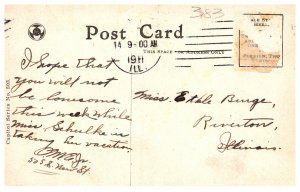 383
Post Card
14 9-00 AM
THIS SPACE FOR ADDRESS ONLY
1911
ILL.
I hope that
you will not
be lonesome
this week while
Miss Schulke is
taking her vacation
505 S. New St.
Miss Ethle Burge,
Riverton,
Illinois.
Capitol Series No. 593.